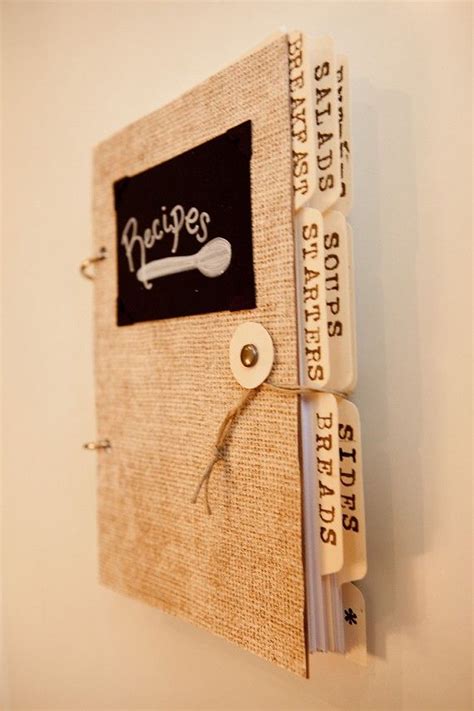 Recipes
BREAKFAST
STARTERS
BREADS
SALADS
SOUPS
SIDES
*